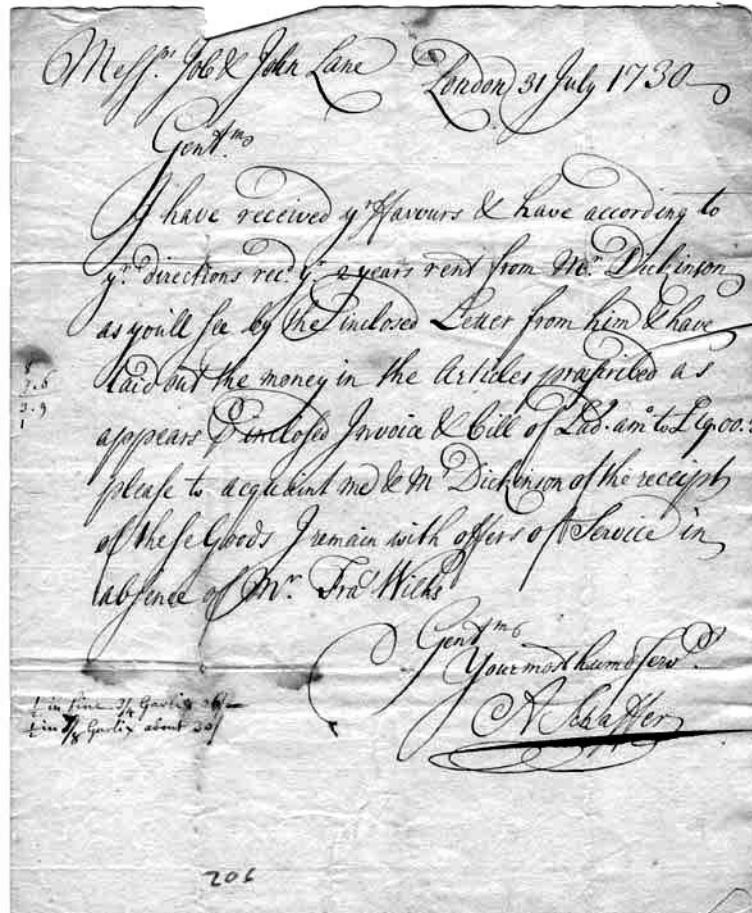 Mess.rs Job & John Lane London 31 July 1730
Gent.m
I have received y.r ffavours & have according to
y.r directions rec.d y.r 2 years rent from M.r Dickinson
as you'll see by the inclosed Letter from him & have
laid out the money in the Articles prescribed as
appears p inclosed Invoice & bill of Lad.g am.o to £19.00:
please to acquaint me & M.r Dickinson of the receipt
of these Goods I remain with offers of Service in
absence of M.r Fra.s Wilks
Gent.m
Your most hum.e serv.t
A Schaffer
7.6
3.9
1
½ in fine ¾ Garlix 36/
½ in ⅞ Garlix about 30/
206